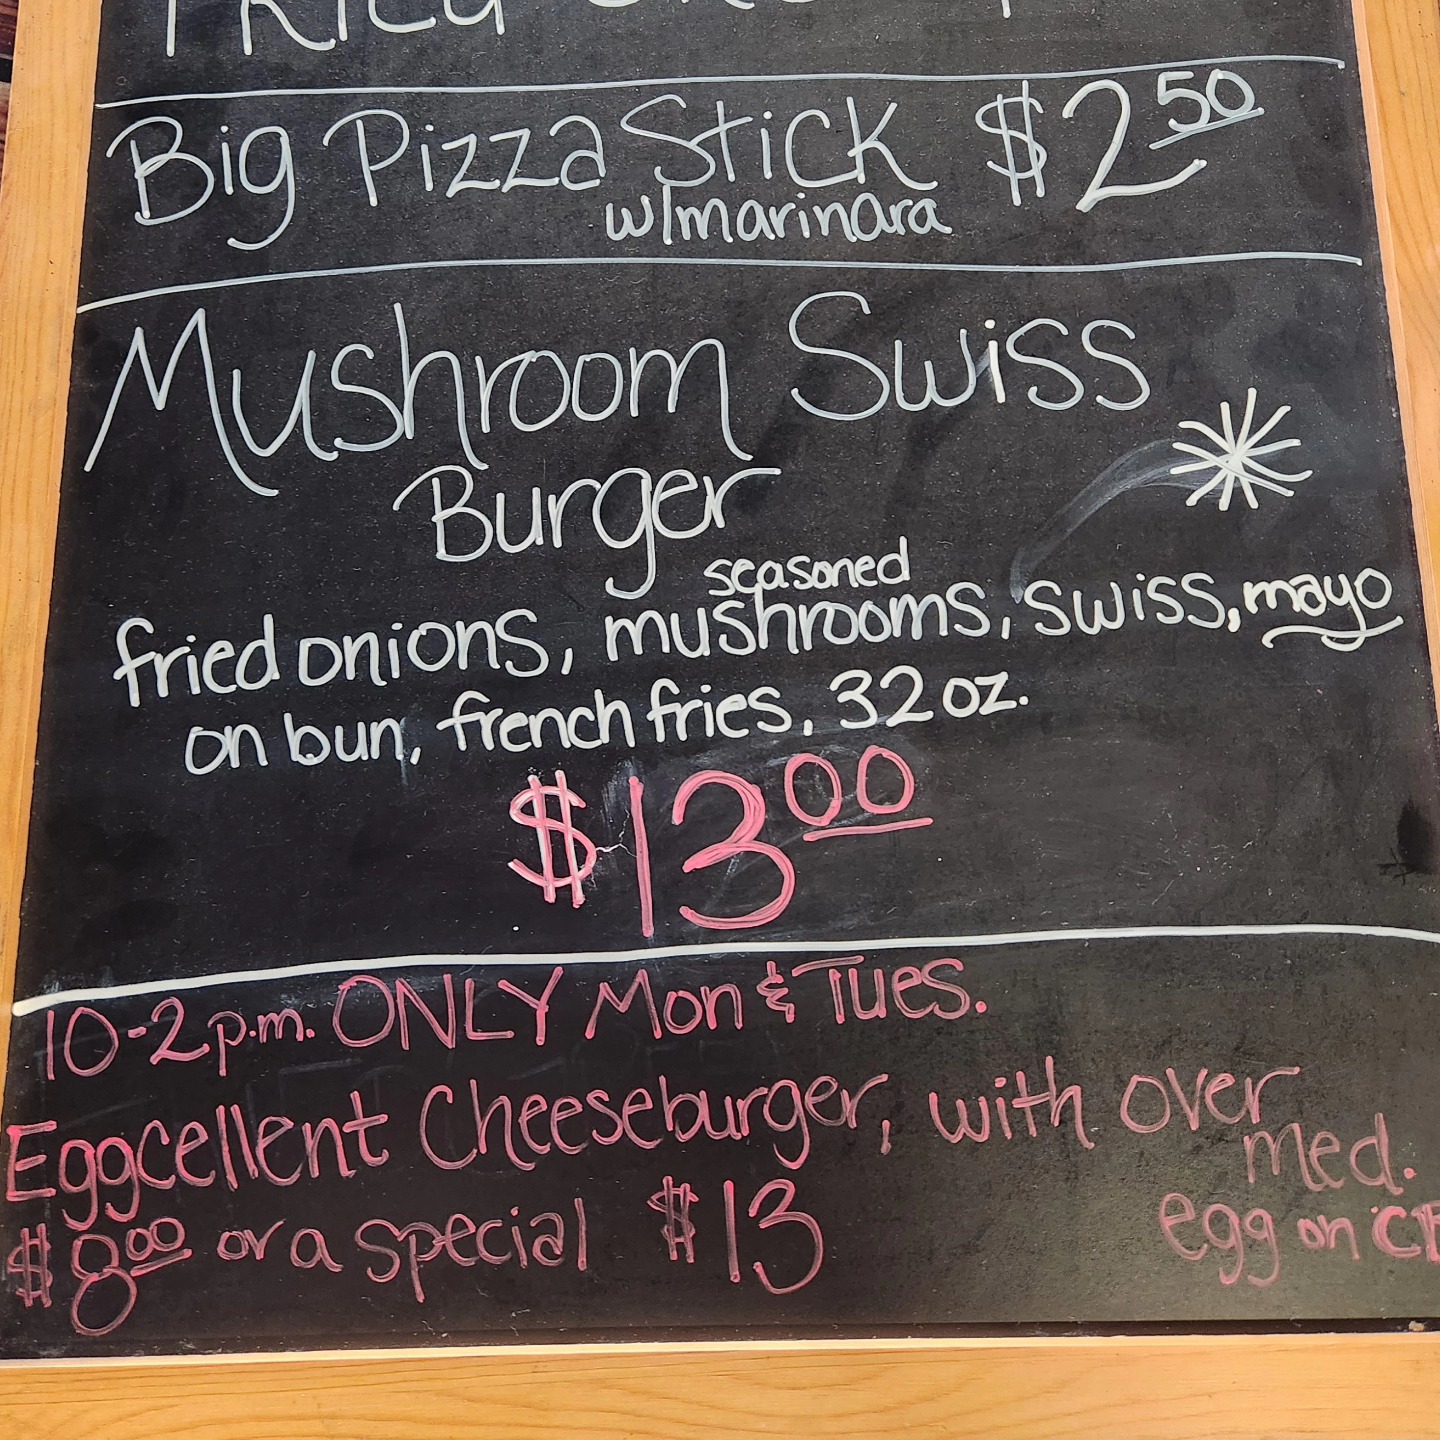 Big Pizza Stick $2.50
w/marinara
Mushroom Swiss
Burger
seasoned
fried onions, mushrooms, swiss, mayo
on bun, french fries, 32 oz.
$13.00
10-2 p.m. ONLY Mon & Tues.
Eggcellent Cheeseburger, with over
med.
$8.00 or a special $13
egg on